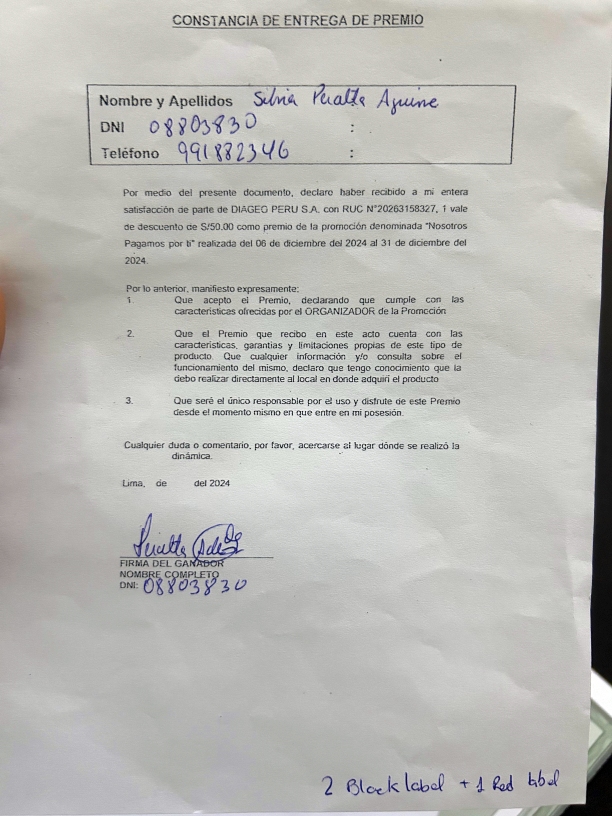 CONSTANCIA DE ENTREGA DE PREMIO
Nombre y Apellidos Silvia Peralta Aguirre
DNI 08803830 :
Teléfono 991882346 :
Por medio del presente documento, declaro haber recibido a mi entera
satisfacción de parte de DIAGEO PERU S.A. con RUC N°20263158327, 1 vale
de descuento de S/50.00 como premio de la promoción denominada "Nosotros
Pagamos por ti" realizada del 06 de diciembre del 2024 al 31 de diciembre del
2024.
Por lo anterior, manifiesto expresamente:
1. Que acepto el Premio, declarando que cumple con las
características ofrecidas por el ORGANIZADOR de la Promoción
2. Que el Premio que recibo en este acto cuenta con las
características, garantías y limitaciones propias de este tipo de
producto. Que cualquier información y/o consulta sobre el
funcionamiento del mismo, declaro que tengo conocimiento que la
debo realizar directamente al local en donde adquirí el producto
3. Que seré el único responsable por el uso y disfrute de este Premio
desde el momento mismo en que entre en mi posesión.
Cualquier duda o comentario, por favor, acercarse al lugar dónde se realizó la
dinámica.
Lima, de del 2024
Peralta
FIRMA DEL GANADOR
NOMBRE COMPLETO
DNI: 08803830
2 Black label + 1 Red label